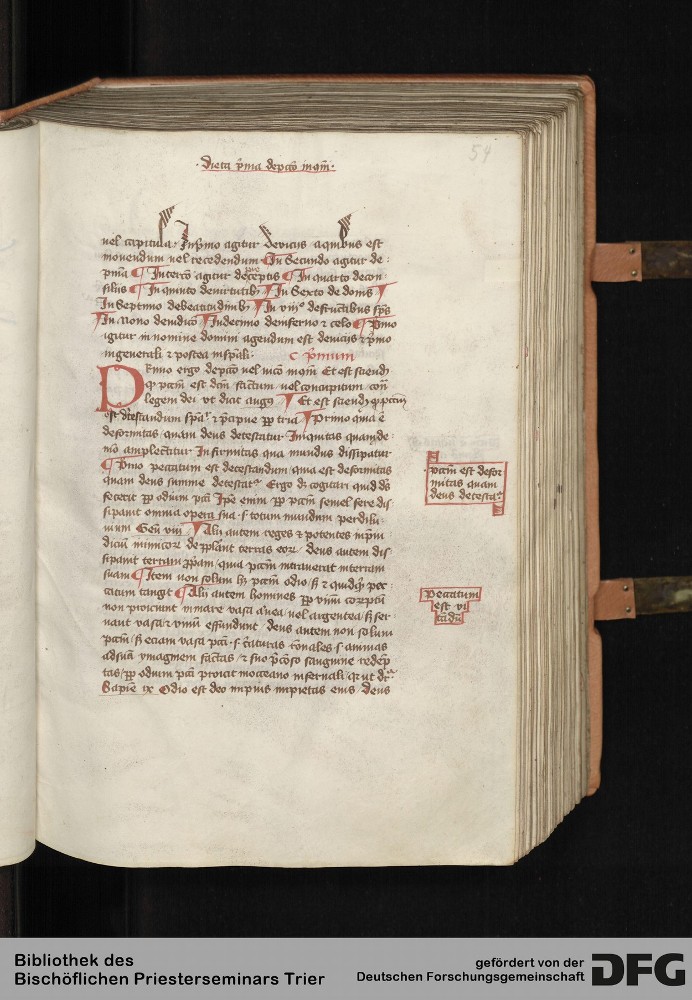 Dieta p̄ma de pctō in gn̄i
54
uel capitula. In p̄mo agitur de vicijs a quibus est
mouendum uel recedendum In Secundo agitur de
pn̄ia In tercō agitur de p̄ceptis In quarto de con
silijs In quinto de virtutibȝ In Sexto de donis
In Septimo de beatitudinibȝ In viijº de fructibus sp̄s
In nono de iudicō In decimo de inferno ⁊ celo P̄mo
igitur in nomine domini agendum est de vicijs ⁊ p̄mo
in generali ⁊ postea in sp̄ali. C p̄mum
PRimo ergo de pctō uel uicō in gn̄i Et est sciendū
ꝙ pctm̄ est dcm̄ factum uel concupitum con̄
legem dei ut dicit augꝰ Et est sciendū ꝙ pctm̄
est detestandum ⁊ p̄cipue ꝓpter tria Primo quia ē
deformitas quam deus detestatur Iniquitas quam de
mō amplectitur Infirmitas qua mundus dissipatur
P̄mo peccatum est detestandum quia est deformitas
quam deus summe detestatr Ergo di cogitari quid ds̄
fecerit ꝓpter odium pcti Ipē enim ꝓpter pctm̄ semel fere dis
sipauit omnia opera sua .s. totum mundum per dilu
uium Gen̄ viij Alij autem reges ⁊ potentes
terras deus autem dis
sipauit terram ꝓpriam quia pctm̄ intrauerat in terram
suam Item non solum hȝ pctm̄ odio sȝ ⁊ quidqd pec
catum tangit Alij autem homines ꝓpter vinū corruptū
non proiciunt in mare vasa aurea uel argentea sȝ ser
uant vasa ⁊ vinū effundunt deus autem non solum
pctm̄ sȝ eciam vasa pcti .s. c̄aturas rōnales .s. animas
ad suā ymaginem factas ⁊ suo p̄cōso sanguine redēp
tas ꝓpter odium pcti proicit in occeano infernali qr ut dr̄
Sapiē ix Odio est deo impius ⁊ impietas eius deus
pctm̄ est defor
mitas quam
deus detestar
Peccatum
est vi
tādū
Bibliothek des
Bischöflichen Priesterseminars Trier
gefördert von der
Deutschen Forschungsgemeinschaft
DFG